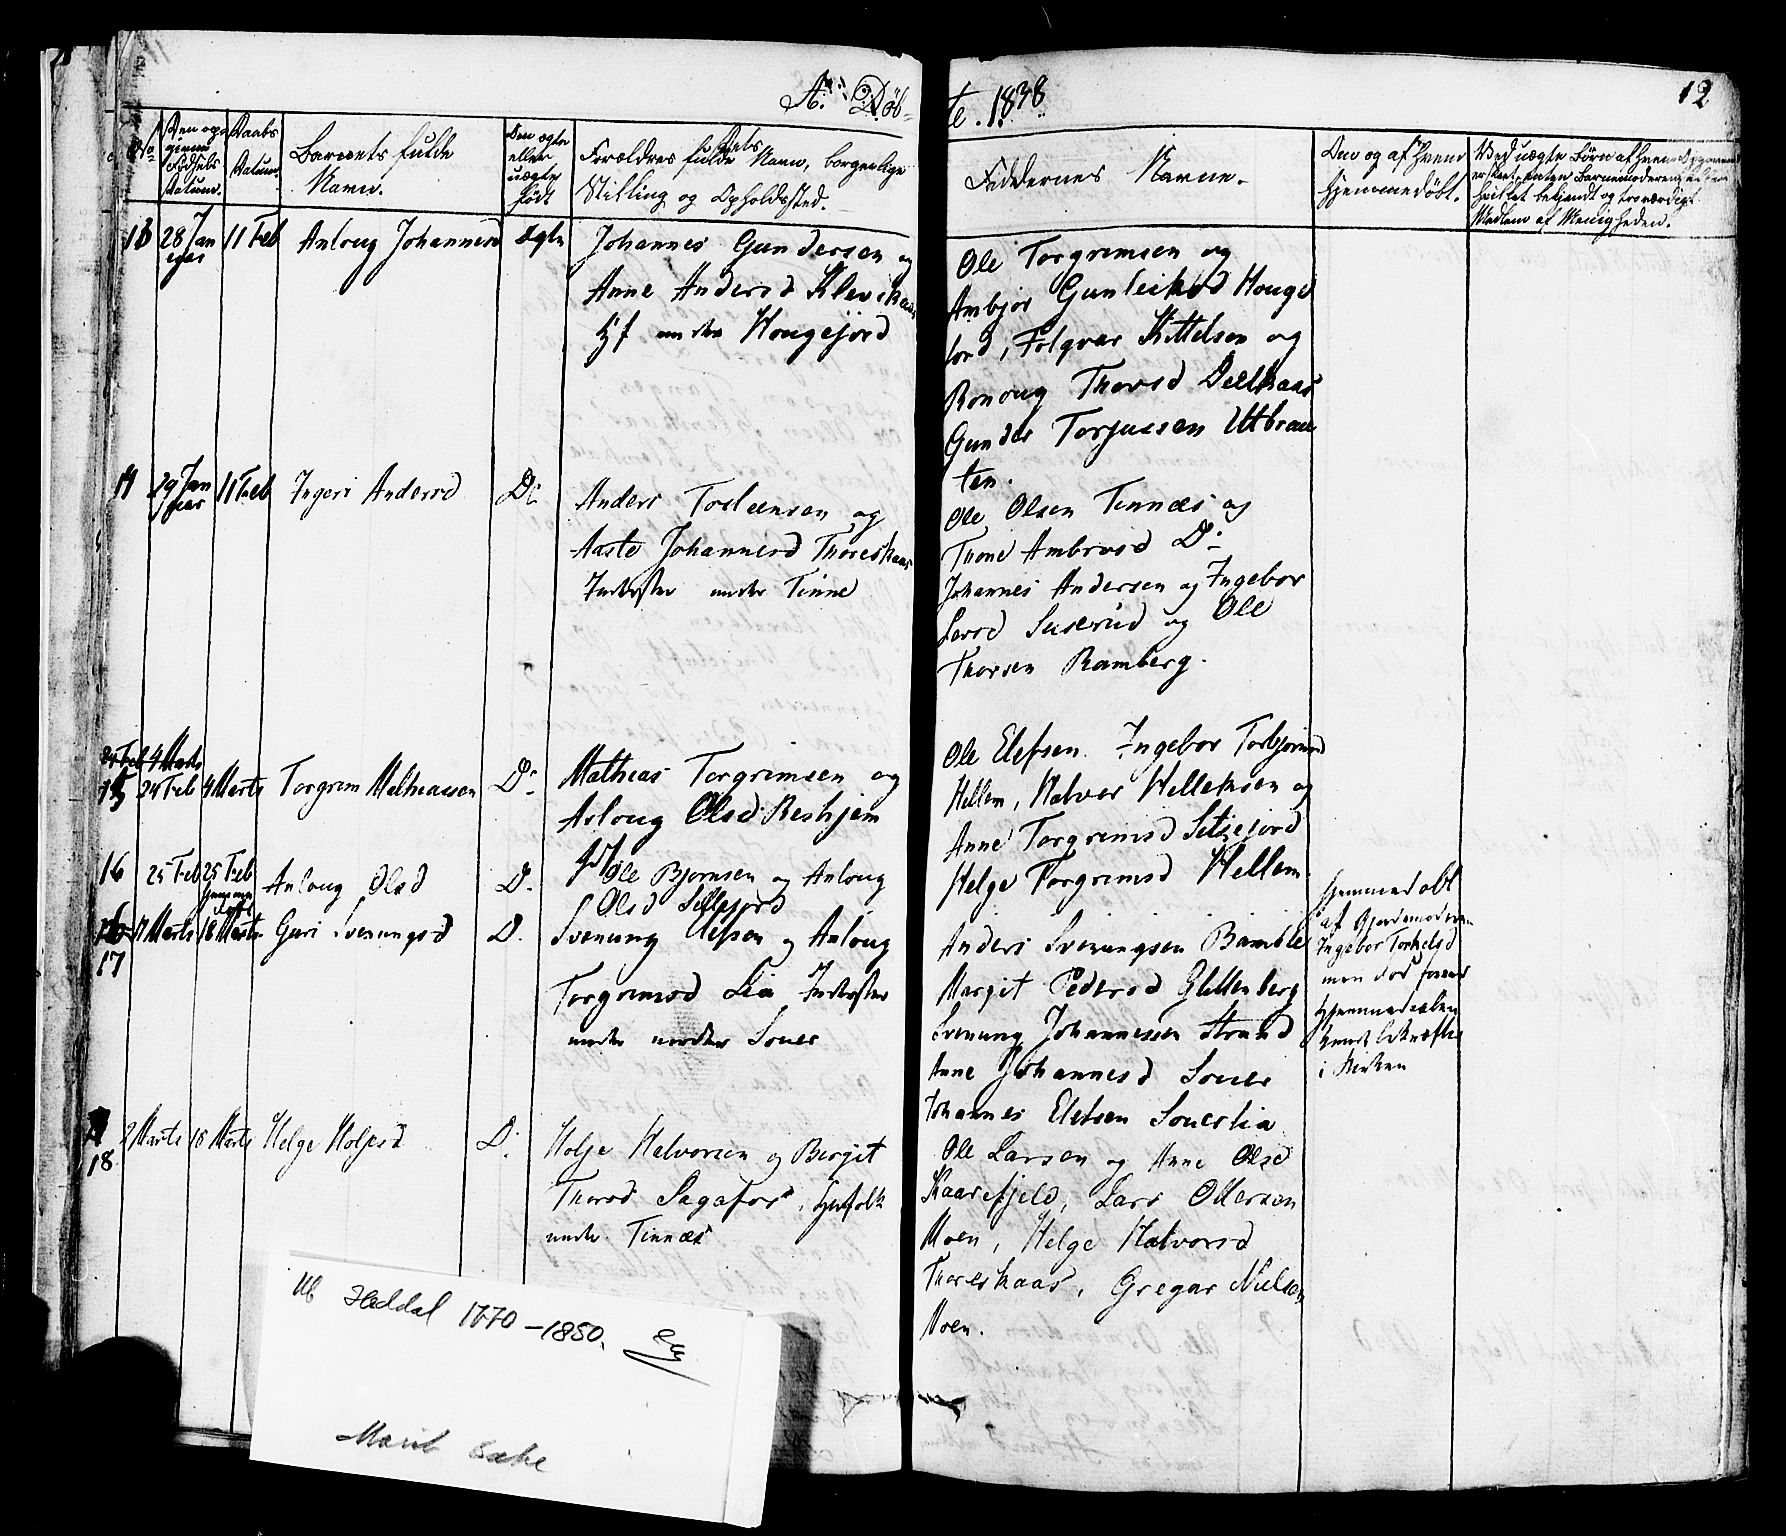 A. Døb-
te. 1838
12
No
Den og
Fødsels
Datum.
Daabs
Datum.
Barnets fulde
Navn.
Den ægte
eller
uægte
født
Forældres fulde Navn, borgerlige
Stilling og Opholdssted.
Faddernes Navne.
Den og af hvem
hjemmedøbt.
Ved uægte Børn af hvem
hvilket bekjendt og troværdigt
Medlem af Menigheden.
13 28 Jan 11 Feb Anloug Johannesd ægte Johannes Gundersen og
uar
Anne Andersd Kleivkaas
Hf under Hougejord
Ole Torgrimsen og
Ambjør Gunleiksd Houge
jord, Folqvar Kittelsen og
Ronoug Thorsd
Gunder Torjussen Utbrau
ten.
14 29 Jan 11 Feb Ingeri Andersd Do
uar
Anders Tosteensen og
Aaste Johannesd Thoreskaas
Inderster under Tinne
Ole Olsen Tinnæs og
Thone Ambrosd Do
Johannes Andersen og Ingebor
Larsd Suserud og Ole
Thorsen Ramberg.
24 Feb 4 Marts
15 24 Feb 4 Marts Torgrim Mathiassen Do Mathias Torgrimsen og
Asloug Olsd Reskjem
Ole Elefsen Ingebor Torbjørnsd
Hellem, Halvor Helleksen og
Anne Torgrimsd Setjejord
Helge Torgrimsd Hellem
16 25 Feb 25 Feb Anloug Olsd D. Ole Bjørnsen og Anloug
Olsd
hjemmedøbt
af Gjordemoderen
Ingebor Torkelsd
men død førend
hjemmedaaben
kunde bekræftes
i Kirken
16 Marts 18 Marts Guri Svenungsd D. Svenung Elefsen og Anloug
17
Torgrimsd Lia Inderster
under nordre Soues
Anders Svenungsen Bamble
Margit Pedersd Glittenberg
Svenung Johannessen Strand
Anne Johannesd Soues
Johannes Elefsen Soueslia
18 2 Marts 18 Marts Helge Holjesd D. Holje Halvorsen og Bergit
Thorsd Sagafos, Husfolk
under Tinnæs
Ole Larsen og Anne Olsd
Kaasefjeld, Lars Ottersen
Moen, Helge Halvorsd
Thoreskaas, Gregar Nielsen
Moen.
Heddal 1770-1850.
Marit